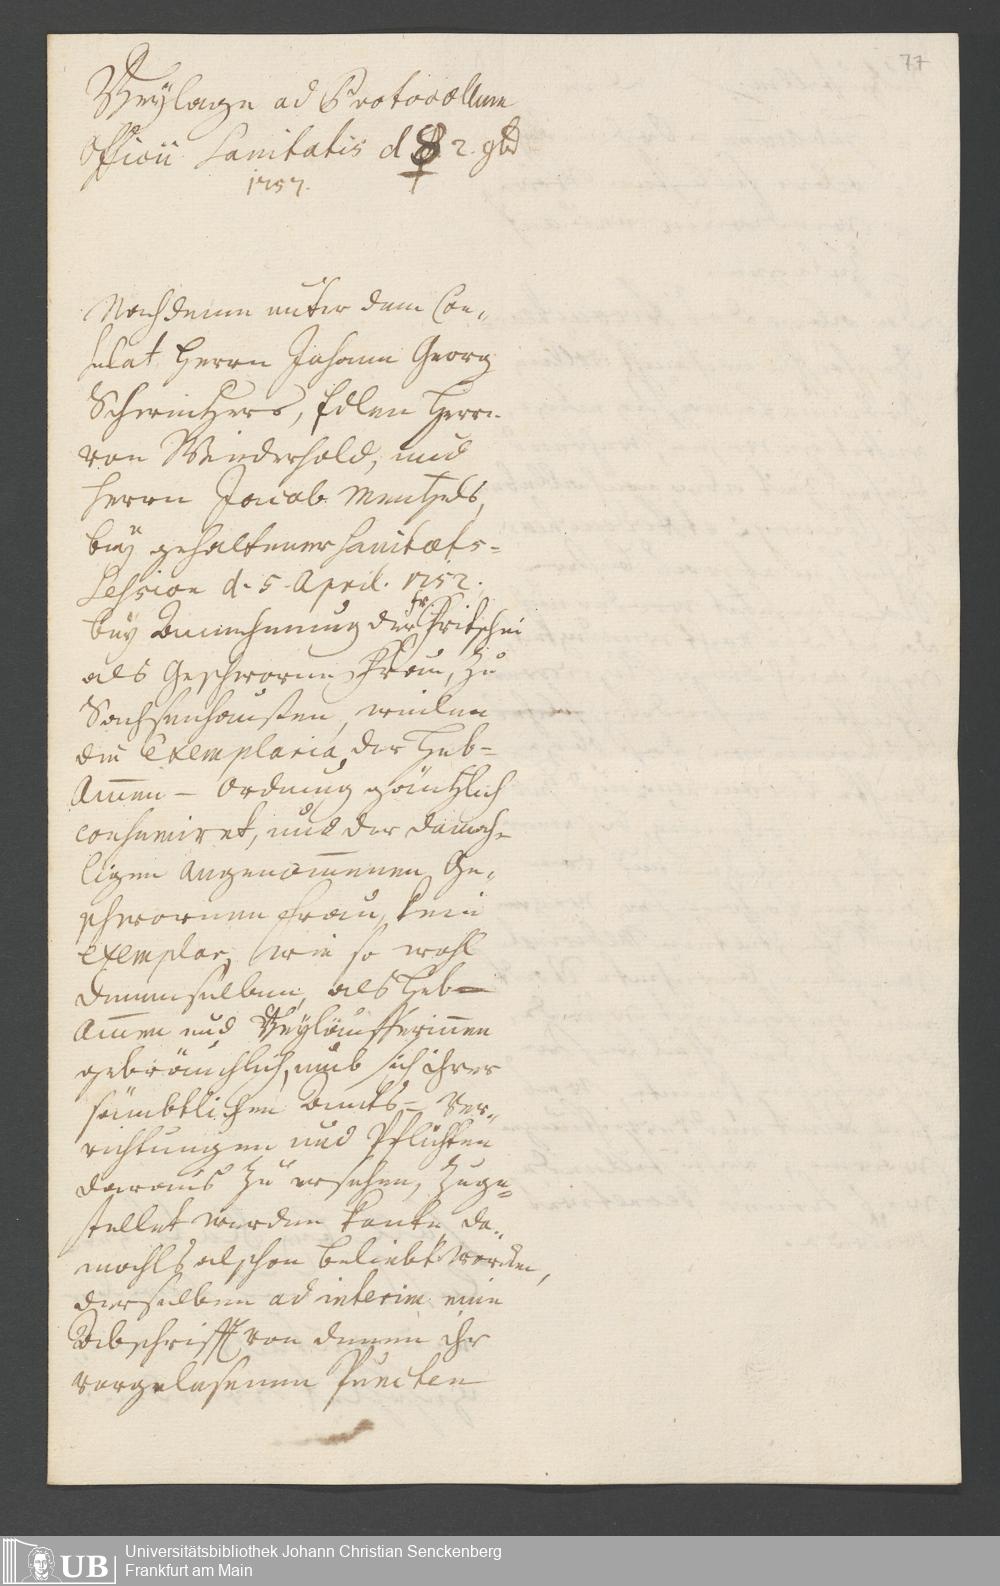 77
Beylage ad Protocollum
Officii Sanitatis d. 2. 9br
1757.
Nachdeme unter dem Con-
sulat Herrn Johann Georg
Schweitzers, Edlen Herrn
von Wiederhold, und
Herrn Jacob Mentzels,
bey gehaltener Sanitæts-
Session d. 5. April. 1752.
bey Annehmung der fr. Fritschin
als Geschworne Frau, zu
Sachsenhaußen, weilen
die Exemplaria der Heb-
Ammen-Ordnung gäntzlich
consumiret, und der damah-
ligen angenommenen Ge-
schwornen Frau, kein
Exemplar, wie so wohl
denenselben, als Heb-
Ammen und Beyläufferinnen
gebräuchlich, umb sich ihrer
sämbtlichen Ambts-Ver-
richtungen und Pflichten
daraus zu ersehen, zuge-
stellet werden konte, da-
mahls alschon beliebt worden,
derselben ad interim eine
Abschrifft von denen ihr
vorgelesenen Puncten
UB
Universitätsbibliothek Johann Christian Senckenberg
Frankfurt am Main